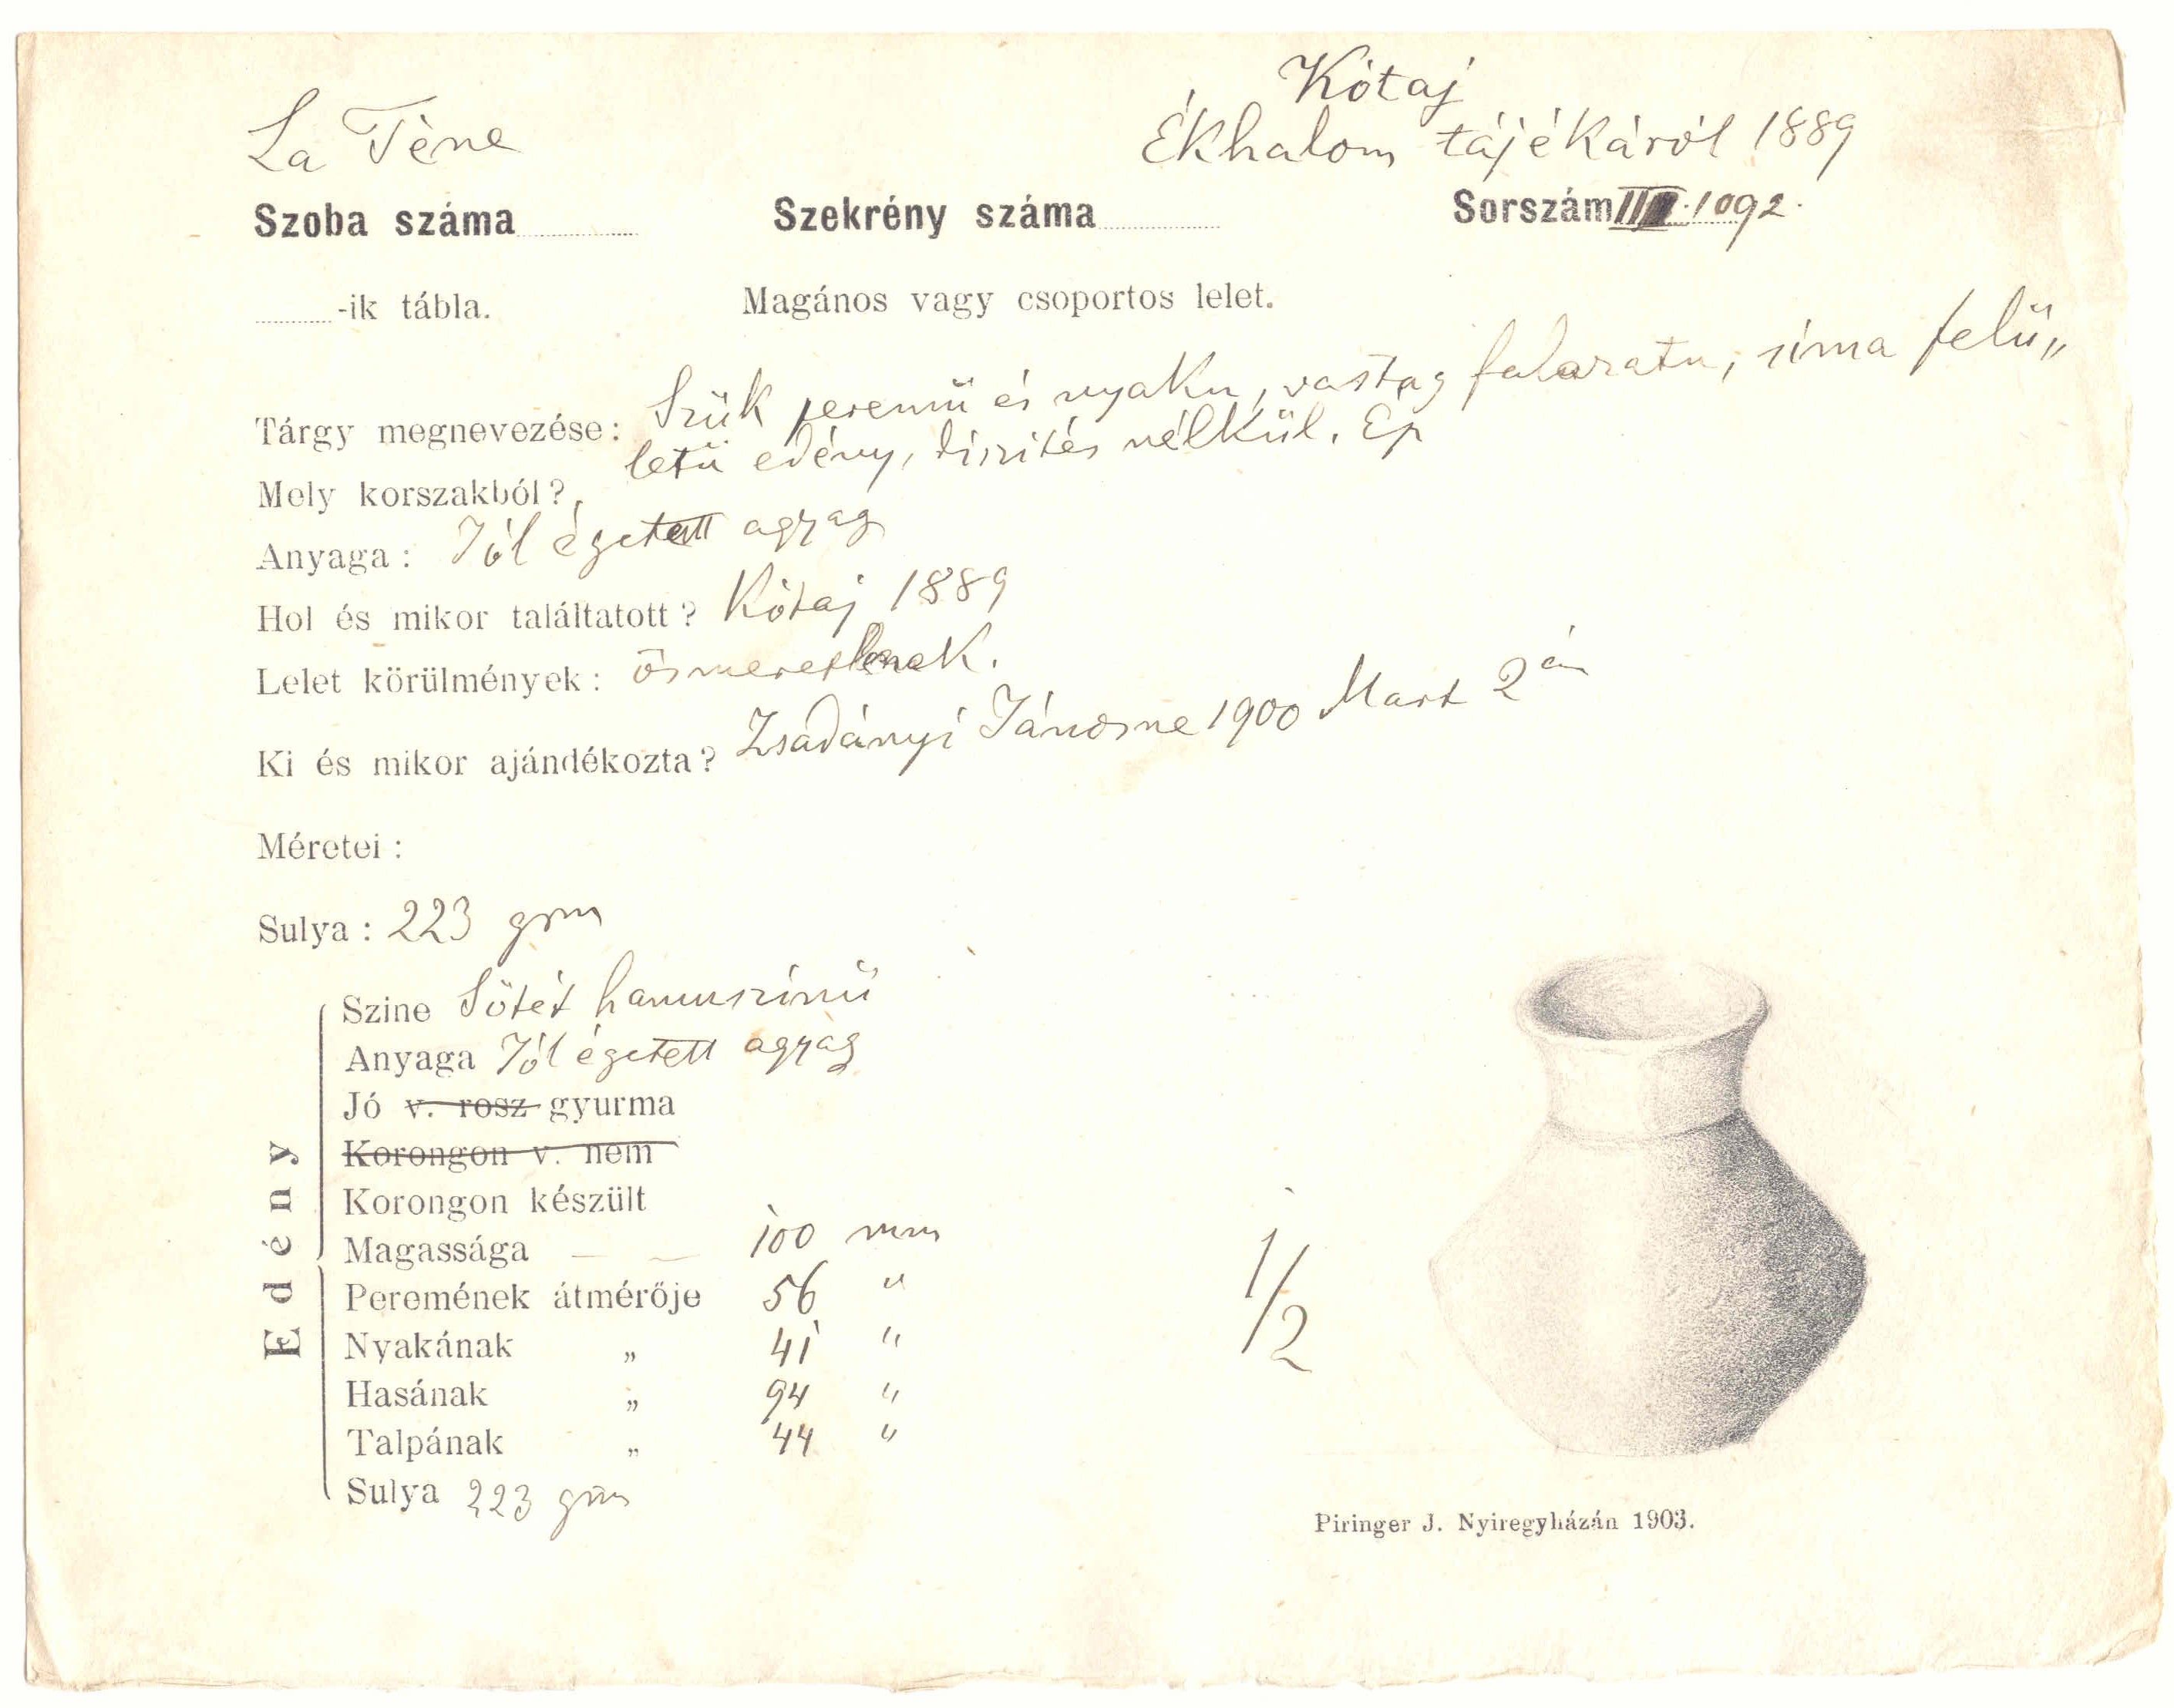 Kótaj
La Tène
Ékhalom tájékáról 1889
Szoba száma Szekrény száma Sorszám III. 1092.
-ik tábla. Magános vagy csoportos lelet.
Tárgy megnevezése: Szük peremü és nyaku, vastag falazatu, sima felü„
letü edény, diszités nélkül. Ép
Mely korszakból?
Anyaga: Jól égetett agyag
Hol és mikor találtatott? Kótaj 1889
Lelet körülmények: ösmeretlenek.
Ki és mikor ajándékozta? Zsadányi Jánosne 1900 Mart 2 án
Méretei:
Sulya: 223 grm
Edény
Szine Sötét hamuszinü
Anyaga Jól égetett agyag
Jó v. rosz gyurma
Korongon v. nem
Korongon készült
Magassága — — 100 mm
Peremének átmérője 56 "
Nyakának „ 41 "
Hasának „ 94 "
Talpának „ 44 "
Sulya 223 grm
1/2
Piringer J. Nyiregyházán 1903.